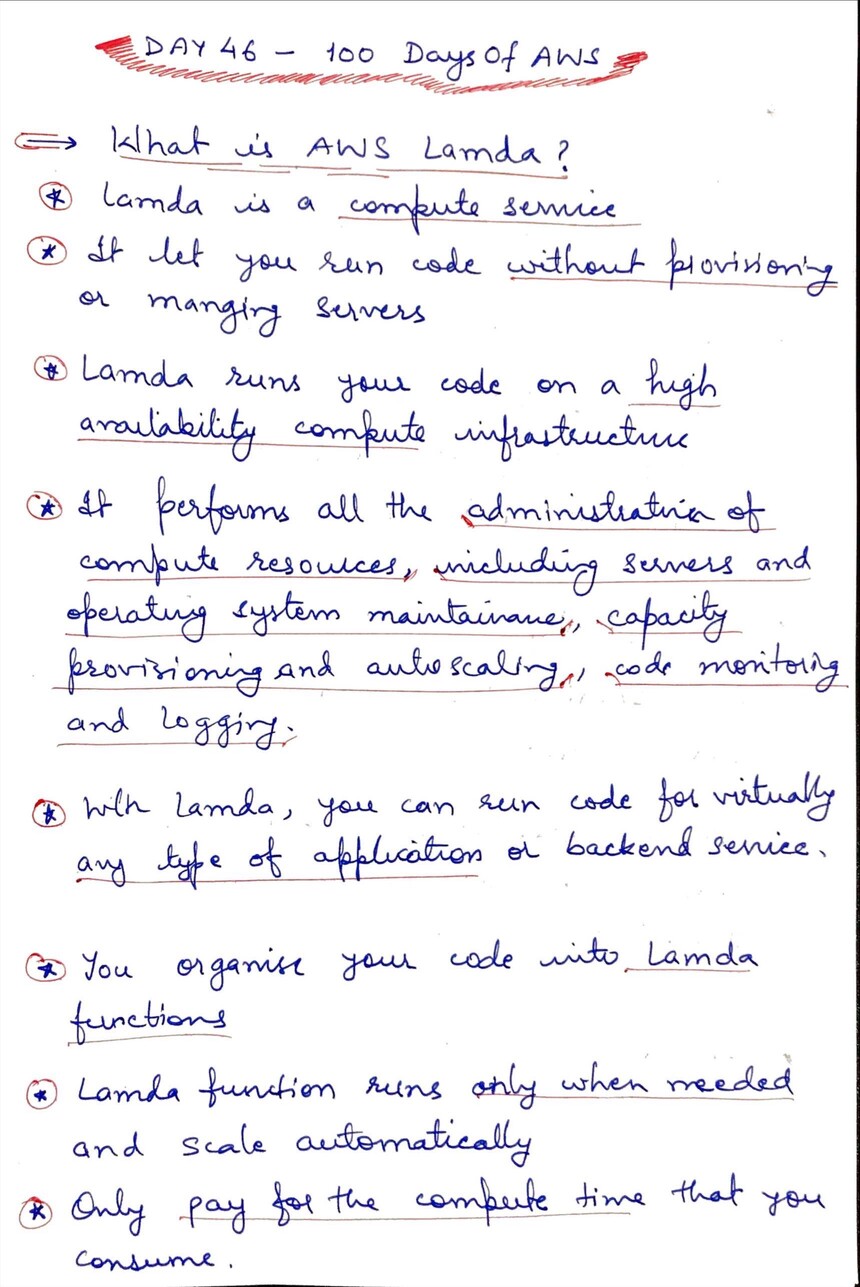 DAY 46 - 100 Days Of AWS
⇒ What is AWS Lamda?
* Lamda is a compute service
* It let you run code without provisioning
or manging servers
* Lamda runs your code on a high
availability compute infrastructure
* It performs all the administration of
compute resources, including servers and
operating system maintainane, capacity
provisioning and autoscaling, code monitoring
and logging.
* With Lamda, you can run code for virtually
any type of application or backend service.
* You organise your code into Lamda
functions
* Lamda function runs only when needed
and scale automatically
* Only pay for the compute time that you
consume.